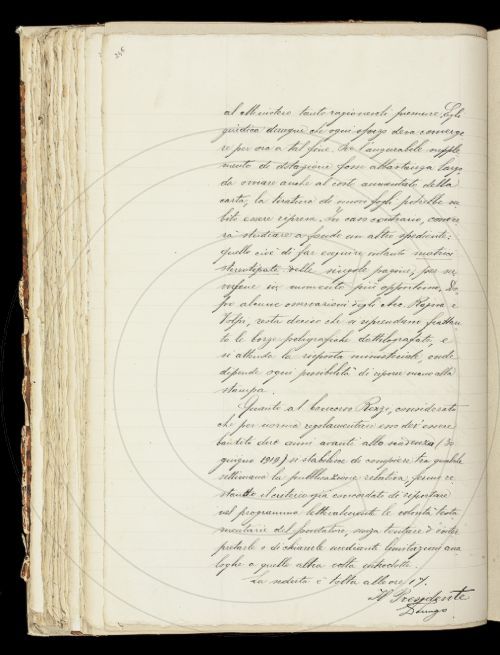 246
al Ministero tanto ragionevoli premure. Egli
giudica dunque che ogni sforzo deva converge
re per ora a tal fine. Se l'augurabile supple
mento di dotazione fosse abbastanza largo
da ovviare anche al costo aumentato della
carta, la tiratura di nuovi fogli potrebbe su
bito essere ripresa. In caso contrario, conver
rà studiare a fondo un altro spediente:
quello cioè di far eseguire intanto matrici
stereotipate delle singole pagine, per ser
virsene in momento più opportuno. Do
po alcune osservazioni degli Acc. Rajna e
Volpi, resta deciso che si riprendano frattan
to le bozze poligrafiche dattilografate, e
si attenda la risposta ministeriale, onde
dipende ogni possibilità di riporre mano alla
stampa.
Quanto al concorso Rezzi, considerato
che per norma regolamentare esso dev'essere
bandito due anni avanti alla scadenza (30
giugno 1918) si stabilisce di compiere tra qualche
settimana la pubblicazione relativa, ferme re
stando il criterio già concordato di riportare
nel programma letteralmente le volontà testa
mentarie del fondatore, senza tentare d'inter
pretarle o di chiarirle mediante limitazioni ana
loghe a quelle altra volta introdotte.
La seduta è tolta alle ore 17.
Il Presidente